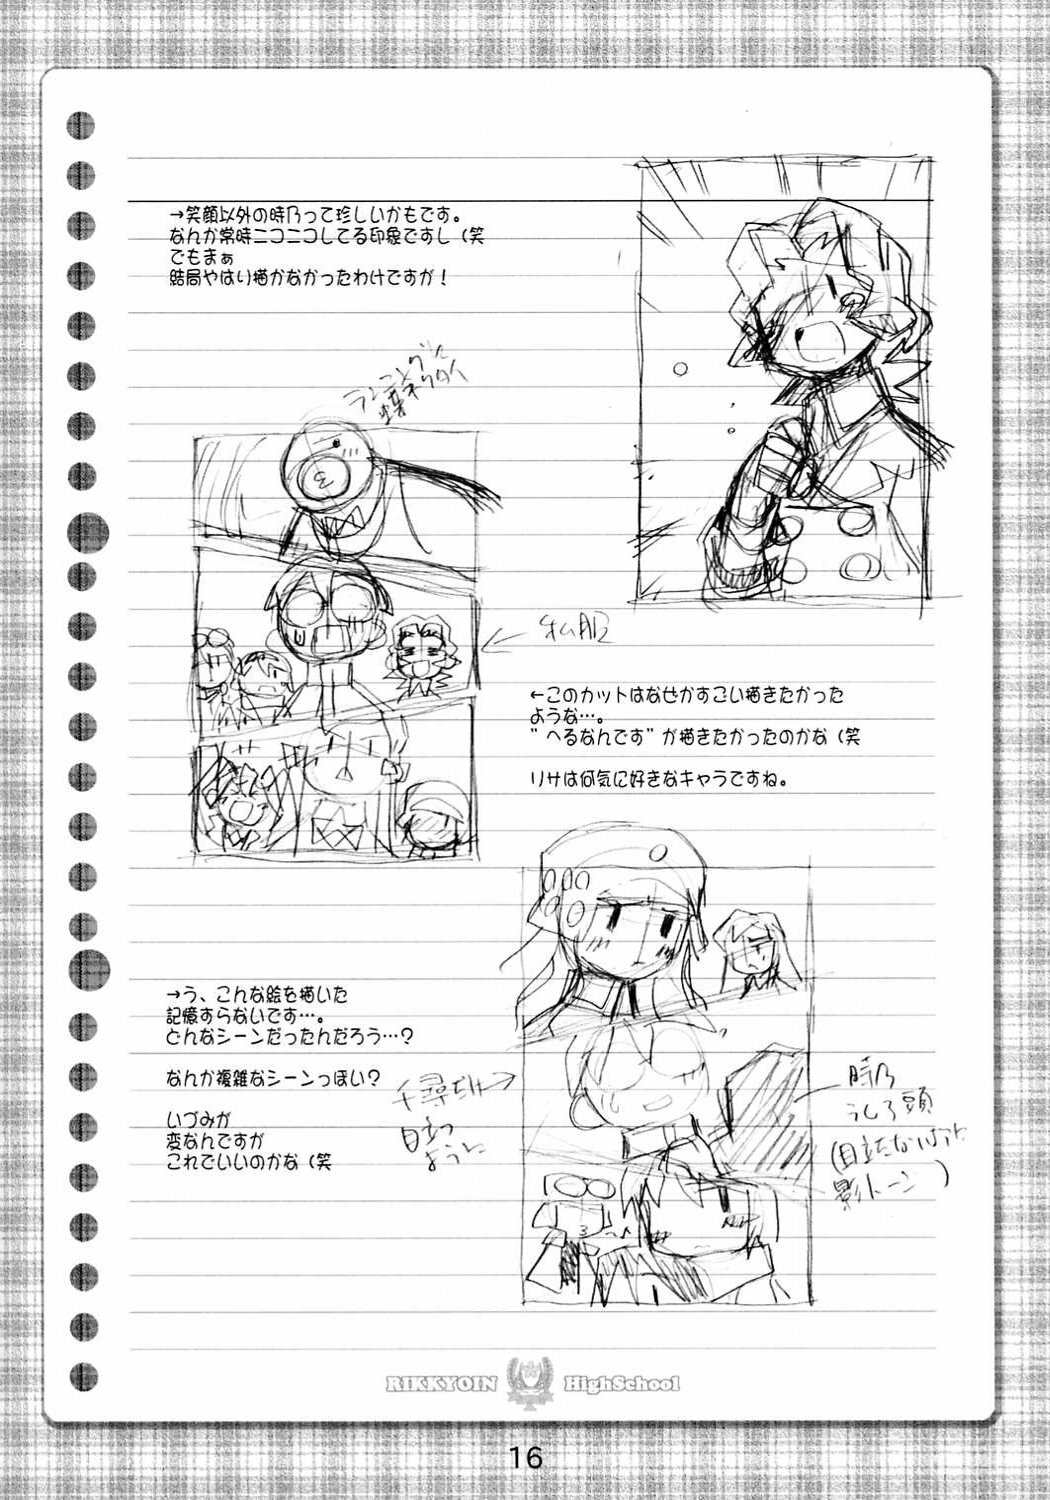 →笑顔以外の時乃って珍しいかもです。
なんか常時ニコニコしてる印象ですし（笑
でもまぁ
結局やはり描かなかったわけですが！
ランニングに
蝶ネクタイ
私服
←このカットはなぜかすごい描きたかった
ような…。
"へるなんです"が描きたかったのかな（笑
リサは何気に好きなキャラですね。
→う、こんな絵を描いた
記憶すらないです…。
どんなシーンだったんだろう…？
なんか複雑なシーンっぽい？
いづみが
変なんですが
これでいいのかな（笑
千尋だけ
目立つ
ように
時乃
うしろ頭
(目立たないように
影トーン)
RIKKYOIN HighSchool
16